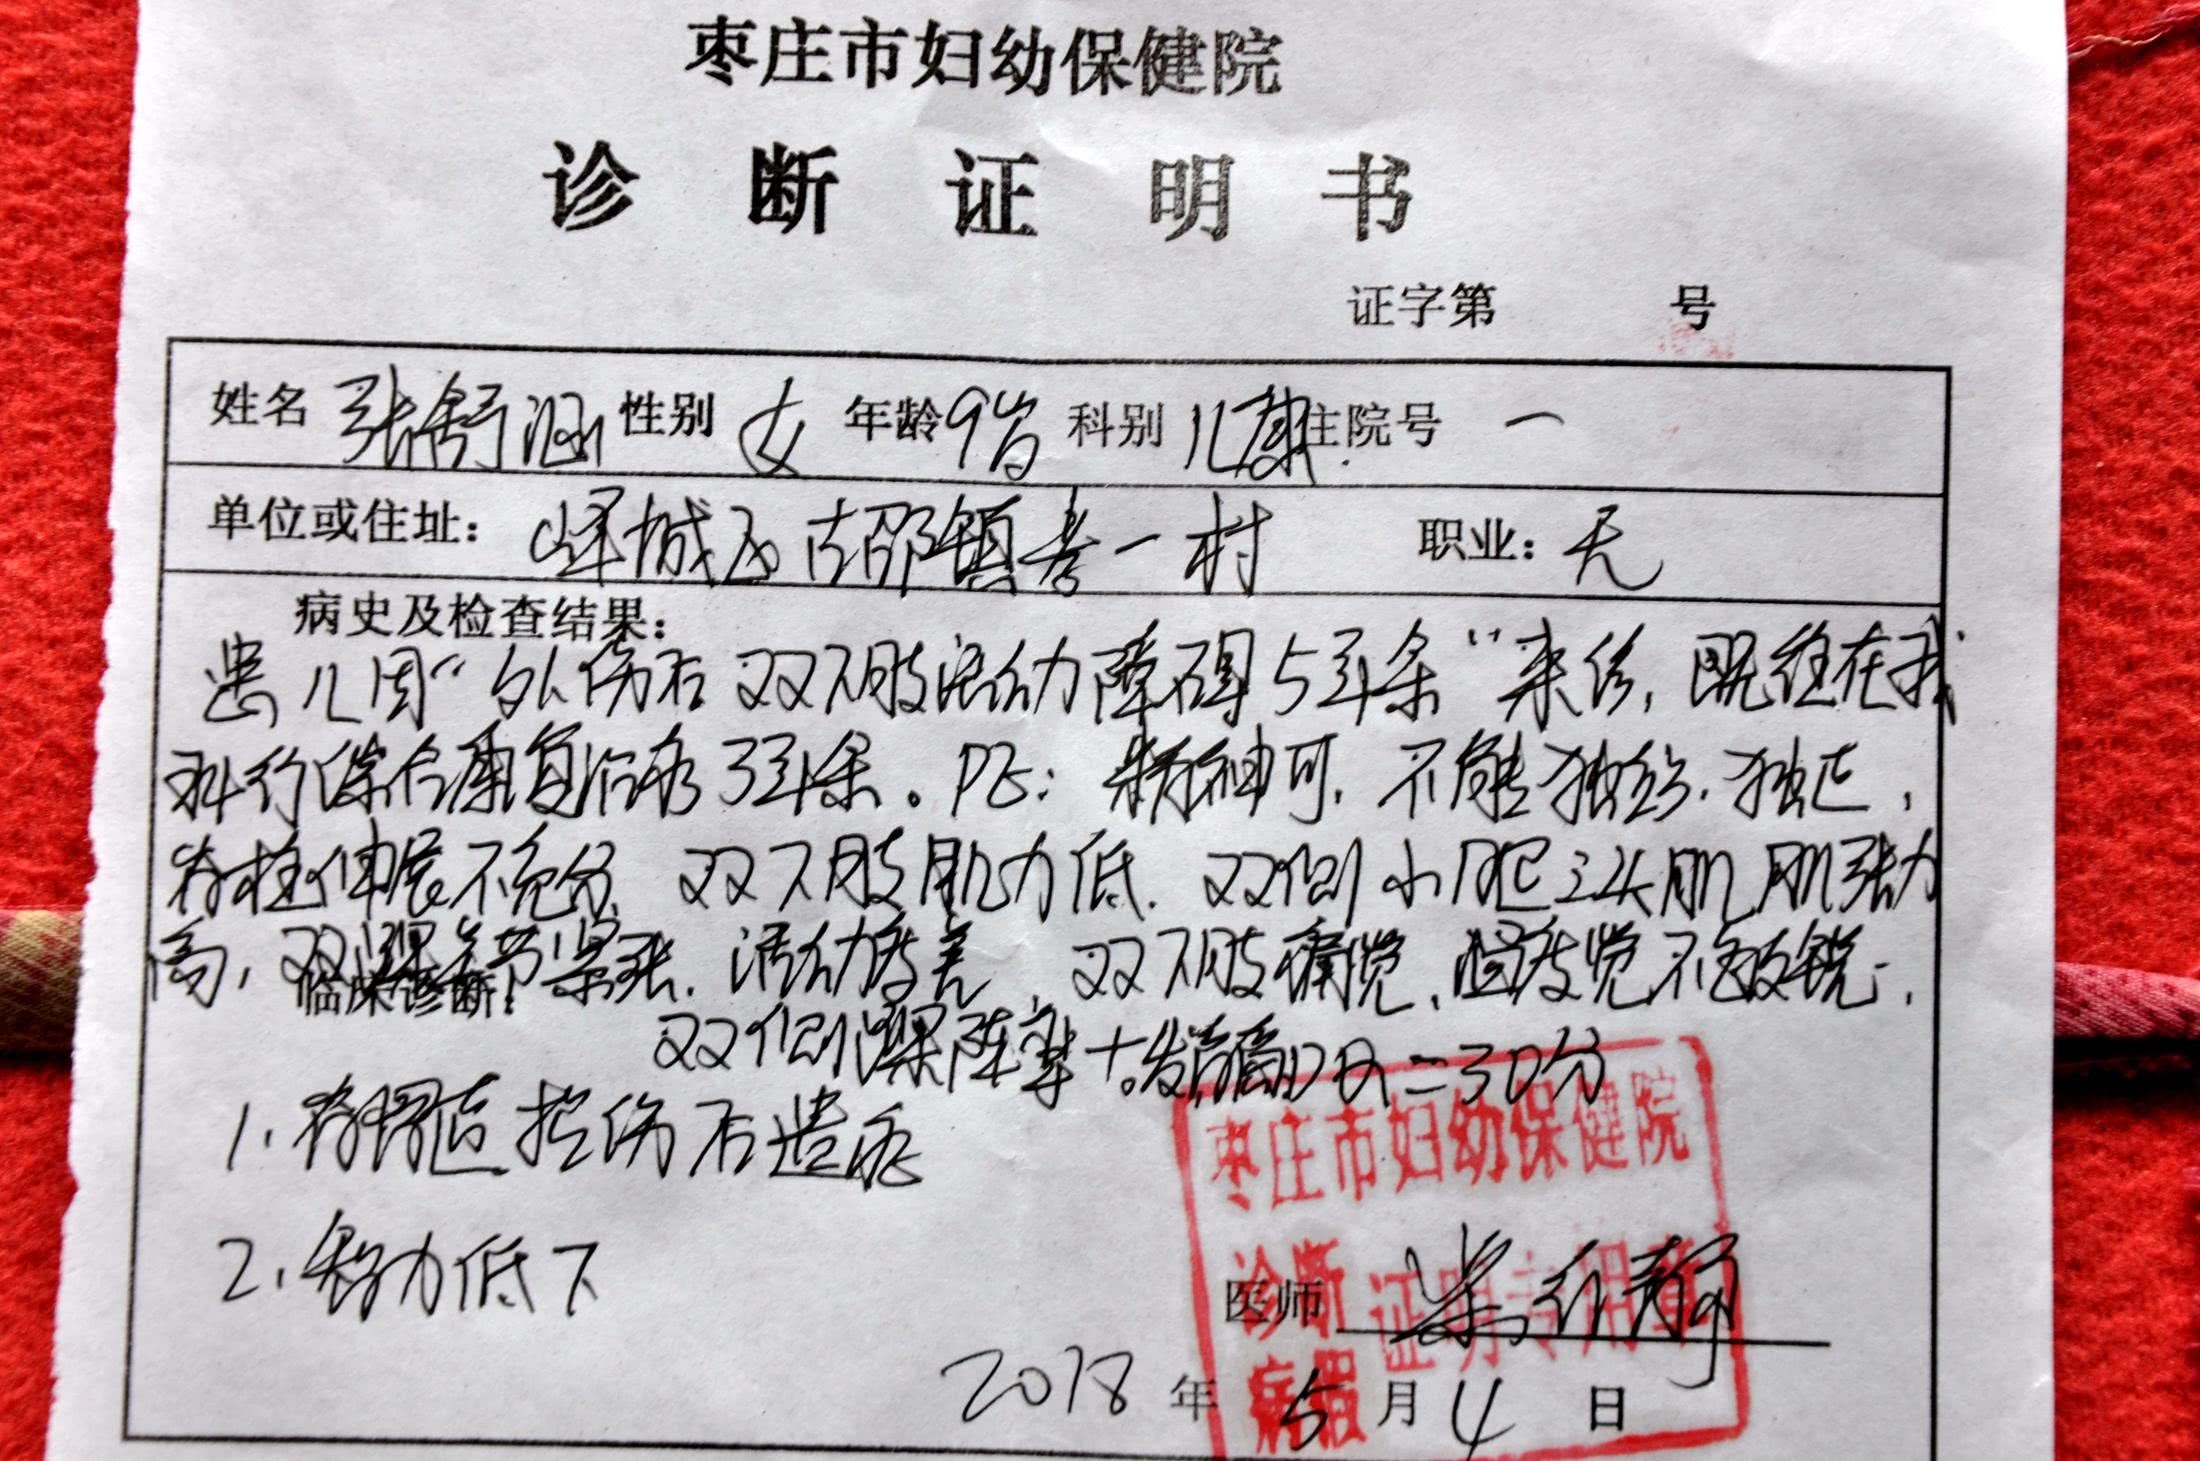 枣庄市妇幼保健院
诊断证明书
证字第 号
姓名 张舒涵 性别 女 年龄 9岁 科别 儿康 住院号 一
单位或住址: 峄城区古邵镇 一村 职业: 无
病史及检查结果:
患儿因"外伤后双下肢活动障碍5年余"来诊,既往在我
科行综合康复治疗3年余。PE: 精神可,不能独站、独走,
脊柱伸展不充分,双下肢肌力低,双侧小腿三头肌肌张力
高,双踝关节紧张,活动度差,双下肢痛觉、温度觉不敏锐,
临床诊断:
双侧踝阵挛+。 =30分
1.脊髓 损伤后遗症
2.智力低下
枣庄市妇幼保健院
诊断证明专用章
病假
医师
2018年5月4日